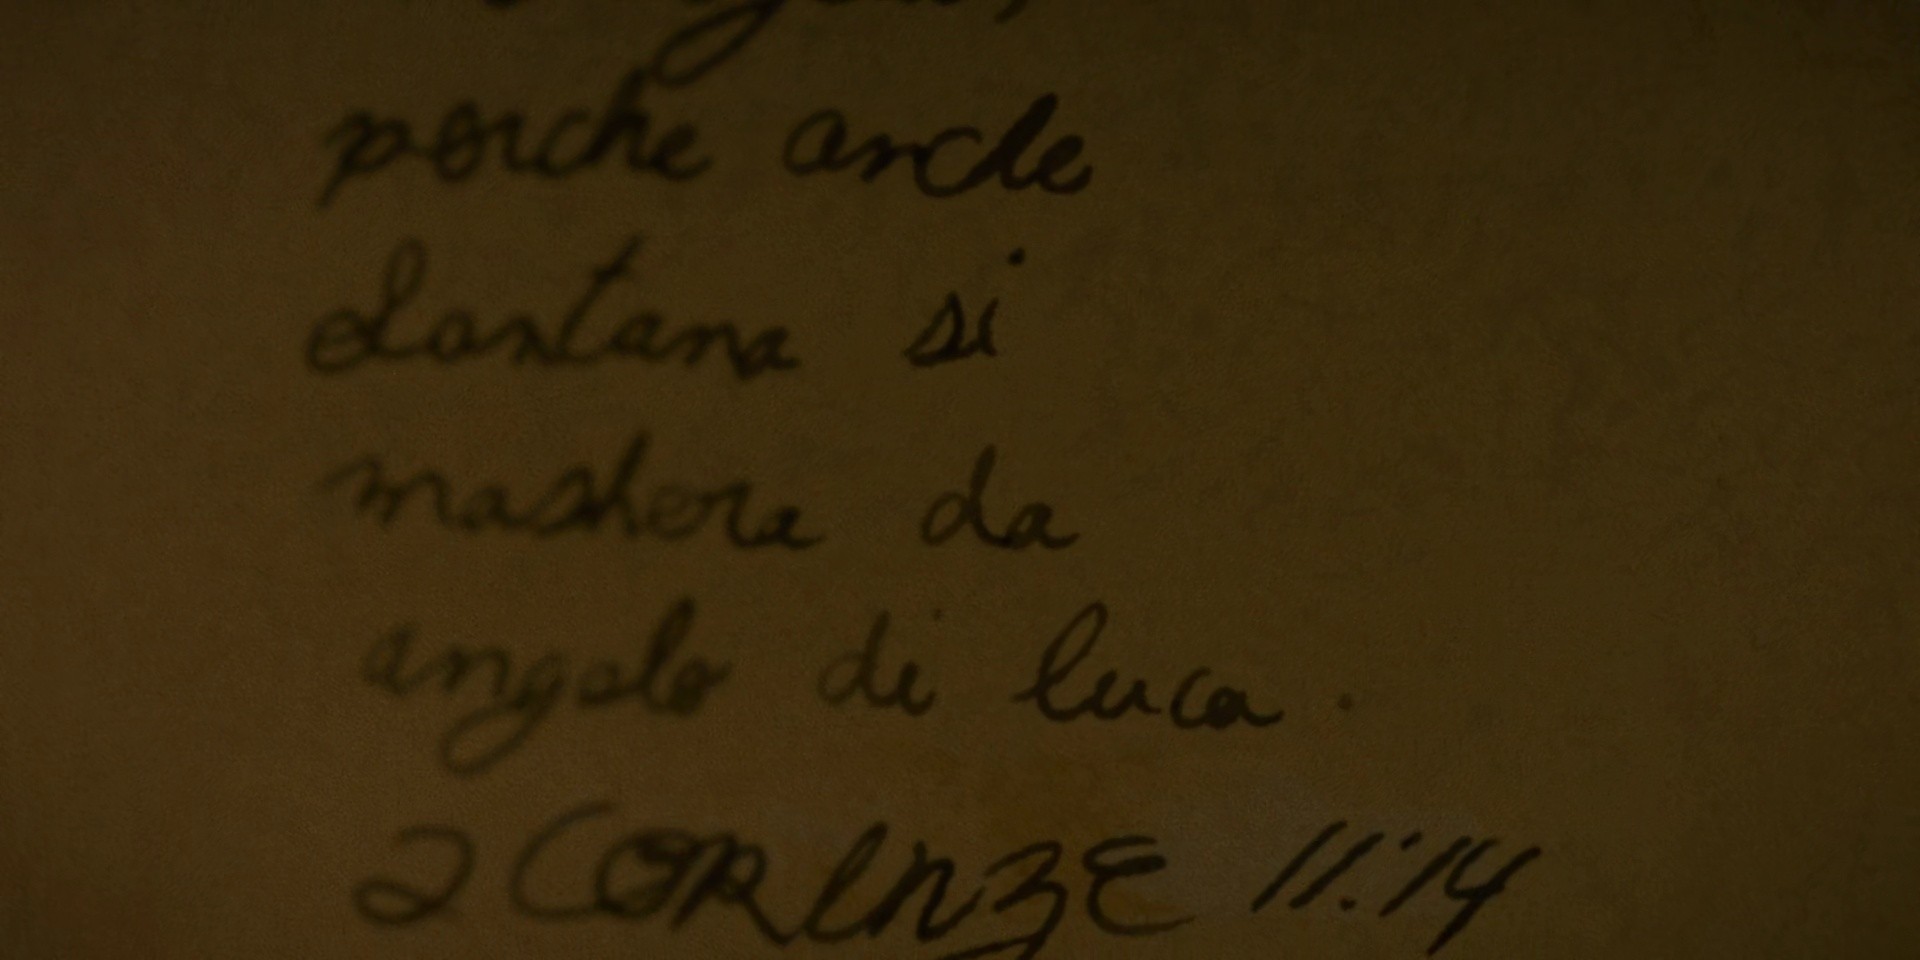 poiche anche
Santana si
mashera da
angelo di luca.
2 CORINZE 11:14